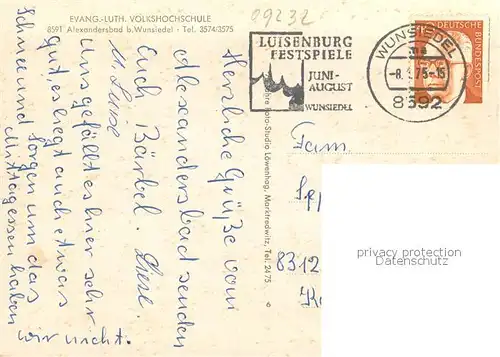 EVANG.-LUTH. VOLKSHOCHSCHULE
8591 Alexandersbad b. Wunsiedel - Tel. 3574/3575
09232
LUISENBURG
FESTSPIELE
JUNI-
AUGUST
WUNSIEDEL
WUNSIEDEL
-8. 75-15
8592
DEUTSCHE BUNDESPOST
Foto-Studio Löwenhag, Marktredwitz, Tel. 2475
Herzliche Grüße vom
Alexandersbad senden
Euch Bärbel. Luise.
u. Luise
Uns gefällt es hier sehr
gut, es liegt auch etwas
Schnee und Sorgen um das
Mittagessen haben
wir nicht.
Fam.
8312
privacy protection
Datenschutz